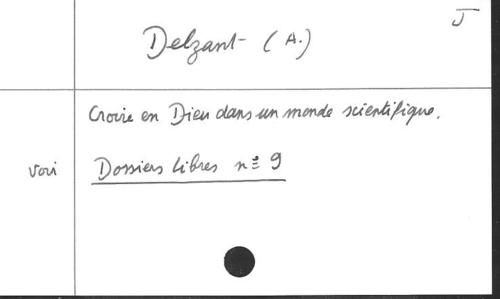 J
Delzant (A.)
Croire en Dieu dans un monde scientifique.
voir Dossiers libres n° 9